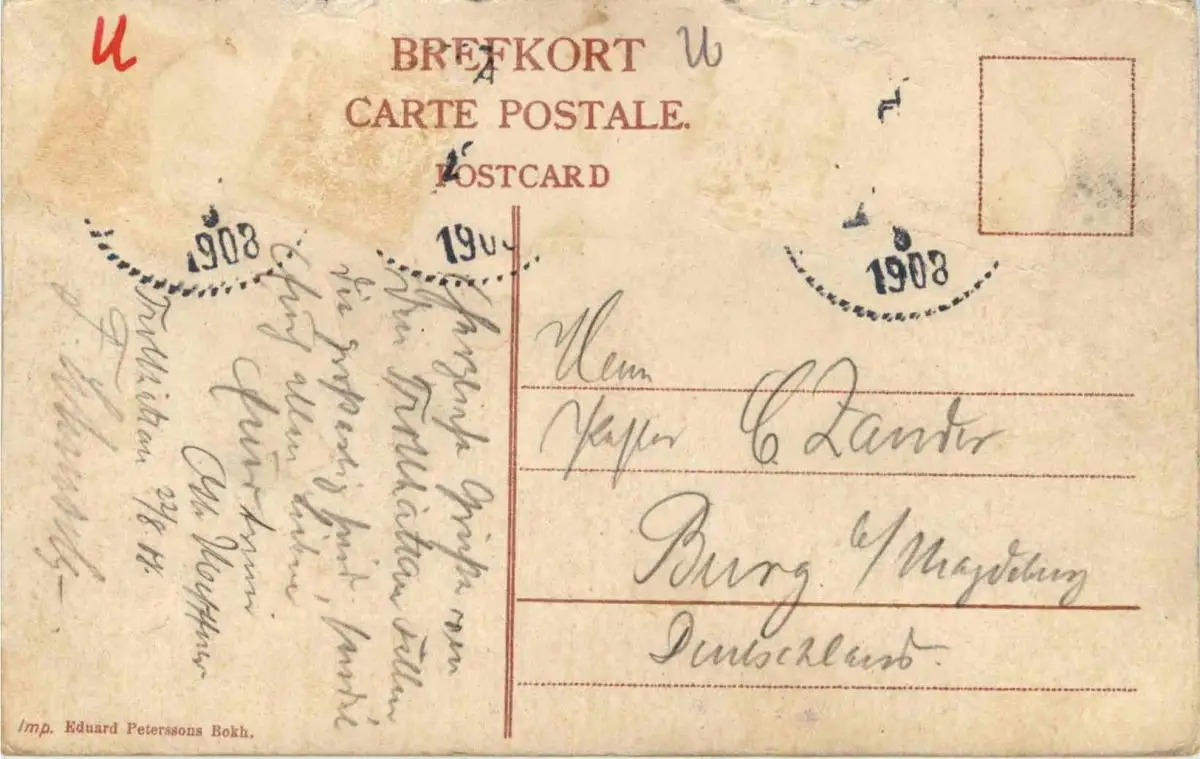 U
BREFKORT
U
CARTE POSTALE.
POSTCARD
1908
190
1908
Herzliche Grüße von
den Trollhättan Fällen
die großartig sind, sendet
Euch allen
Euer
Otto
Trollhättan 22/8 08.
F.
Herrn
C. Zander
Burg b/Magdeburg
Deutschland.
Imp. Eduard Peterssons Bokh.